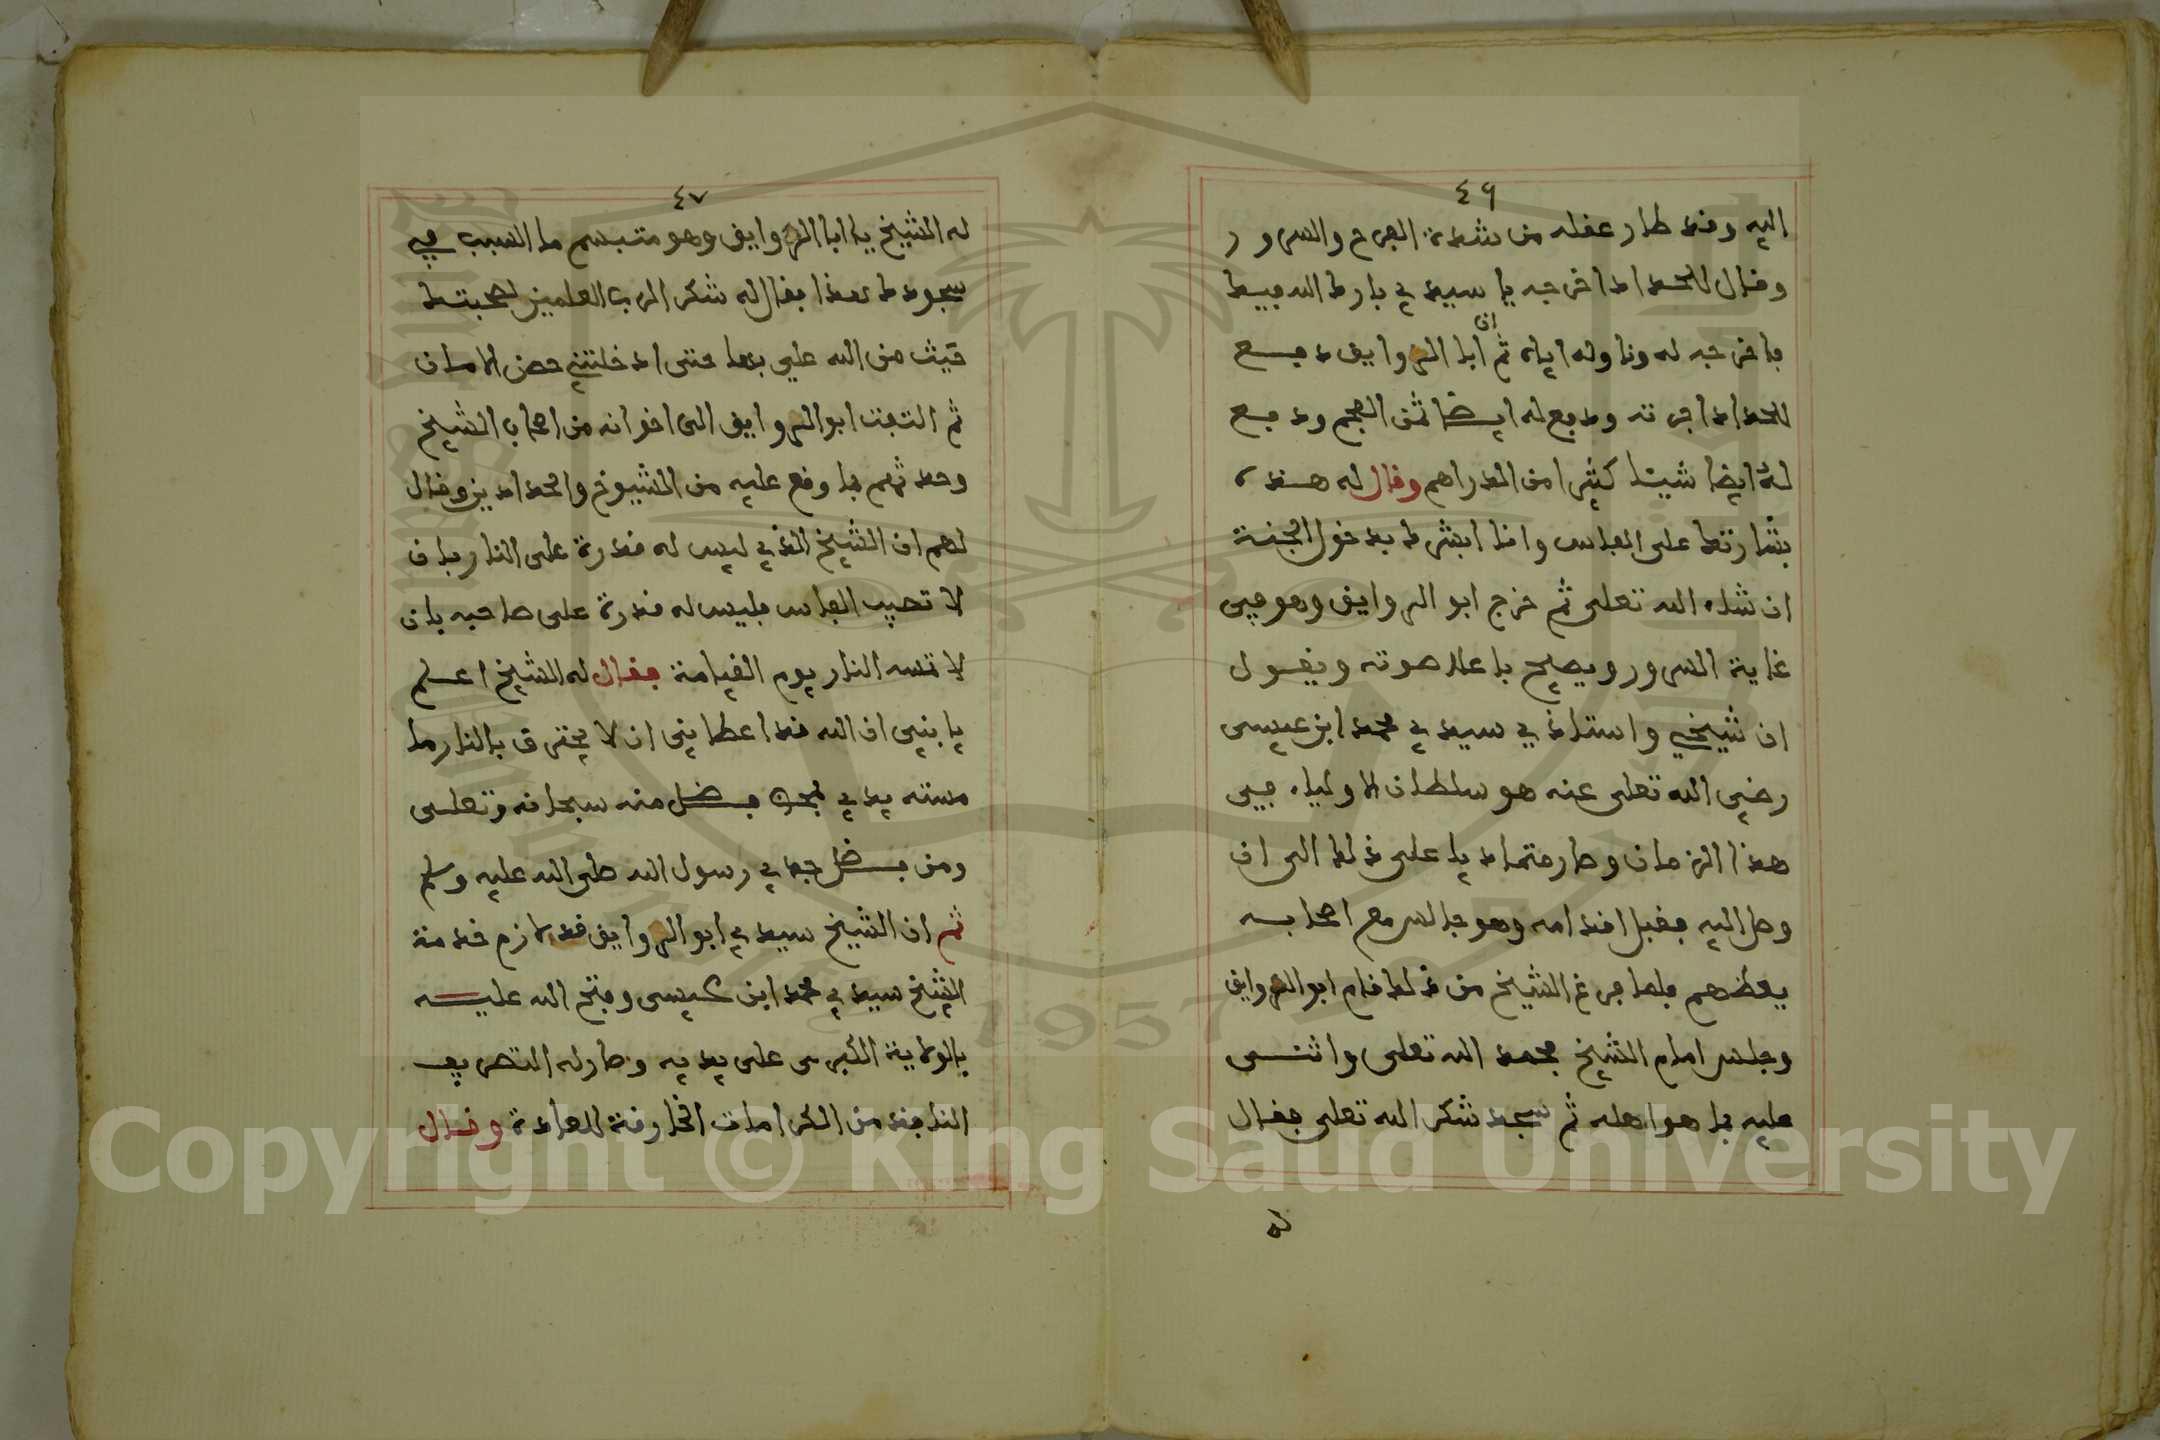 ٤٦
اليه وقد طار عقله من شدة الفرح والسرور
وقال للحداد اخرجه يا سيدي بارك الله فيك
فاخرجه له وناوله اياه ثم ان ابا الروايق دفع
للحداد اجرته ودفع له ايضا ثمن الفحم ودفع
له ايضا شيئا كثيرا من الدراهم وقال له هذه
بشارتك على الفاس وانا ابشرك بدخول الجنة
ان شاء الله تعلى ثم خرج ابو الروايق وهو في
غاية السرور ويصيح باعلا صوته ويقول
ان شيخي واستاذي سيدي محمد ابن عيسى
رضي الله تعلى عنه هو سلطان الاولياء في
هذا الزمان وصار متماديا على ذلك الى ان
وصل اليه فقبل اقدامه وهو جالس مع اصحابه
يعظهم فلما فرغ الشيخ من ذلك قام ابو الروايق
وجلس امام الشيخ فحمد الله تعلى واثنى
عليه بما هو اهله ثم سجد شكر الله تعلى فقال
له
٤٧
له الشيخ يا ابا الروايق وهو متبسم ما السبب في
سجودك هذا فقال له شكر الرب العلمين لصحبتك
حيث من الله علي بها حتى ادخلتني حصن الامان
ثم التفت ابو الروايق الى اخوانه من اصحاب الشيخ
وحدثهم بما وقع عليه من الشيوخ والحدادين وقال
لهم ان الشيخ الذي ليس له قدرة على النار بان
لا تصيب الفاس فليس له قدرة على صاحبه بان
لا تمسه النار يوم القيامة فقال له الشيخ اعلم
يا بني ان الله قد اعطاني ان لا يحترق بالنار ما
مسته يدي بفضل منه سبحانه وتعلى
ومن بفضل جدي رسول الله صلى الله عليه وسلم
ثم ان الشيخ سيدي ابو الروايق قد لازم خدمة
الشيخ سيدي محمد ابن عيسى وفتح الله عليه
بالولاية الكبرى على يديه وصار له التصريف
النافذ من الكرامات الخارقة للعادة وقال
Copyright © King Saud University
1957